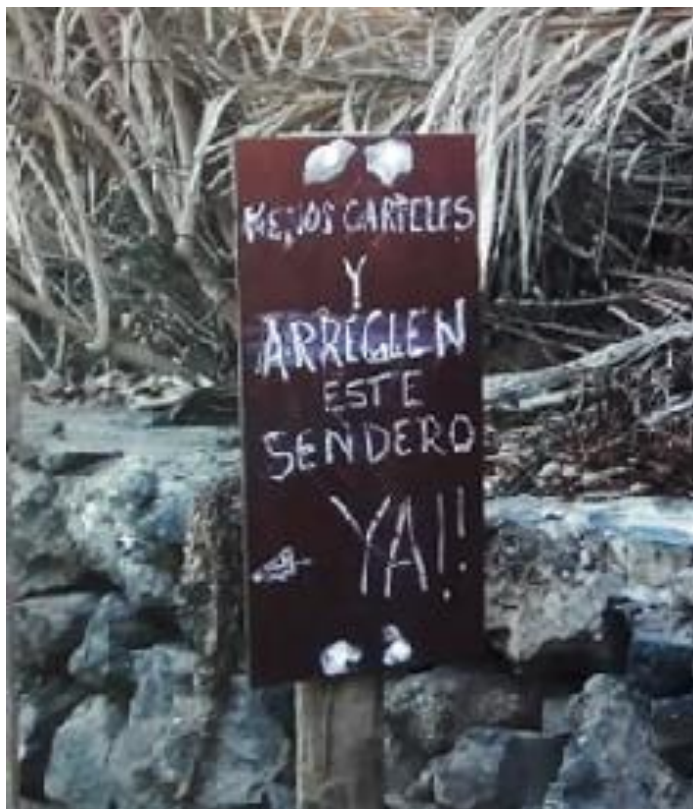 MENOS CARTELES
Y
ARREGLEN
ESTE
SENDERO
YA!!